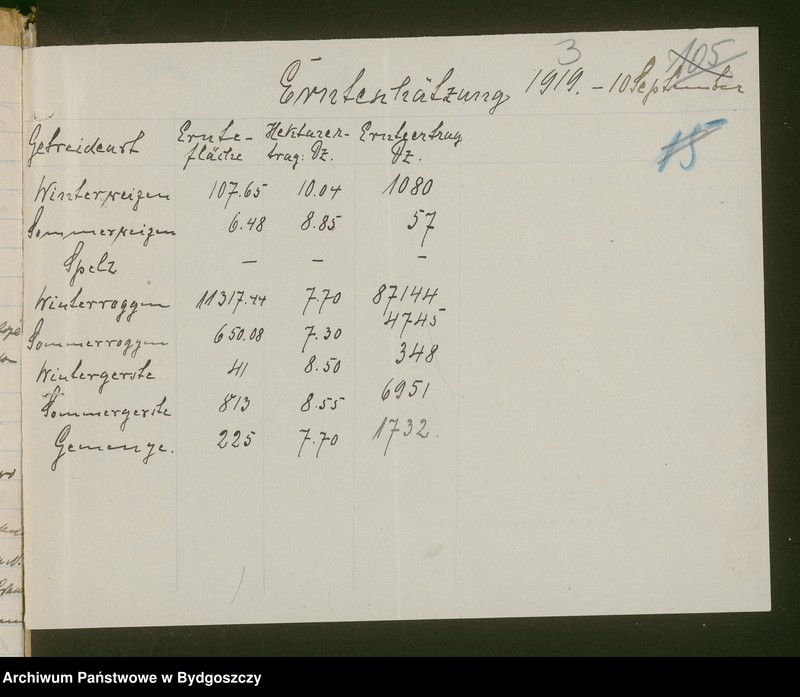 3
105
Ernteschätzung 1919. – 10 September
15
Getreideart Ernte- Hektarer- Ernteertrag
fläche trag: Dz. Dz.
Winterweizen 107.65 10.04 1080
Sommerweizen 6.48 8.85 57
Spelz – – –
Winterroggen 11317.44 7.70 87144
Sommerroggen 650.08 7.30 4745
Wintergerste 41 8.50 348
Sommergerste 813 8.55 6951
Gemenge. 225 7.70 1732.
Archiwum Państwowe w Bydgoszczy